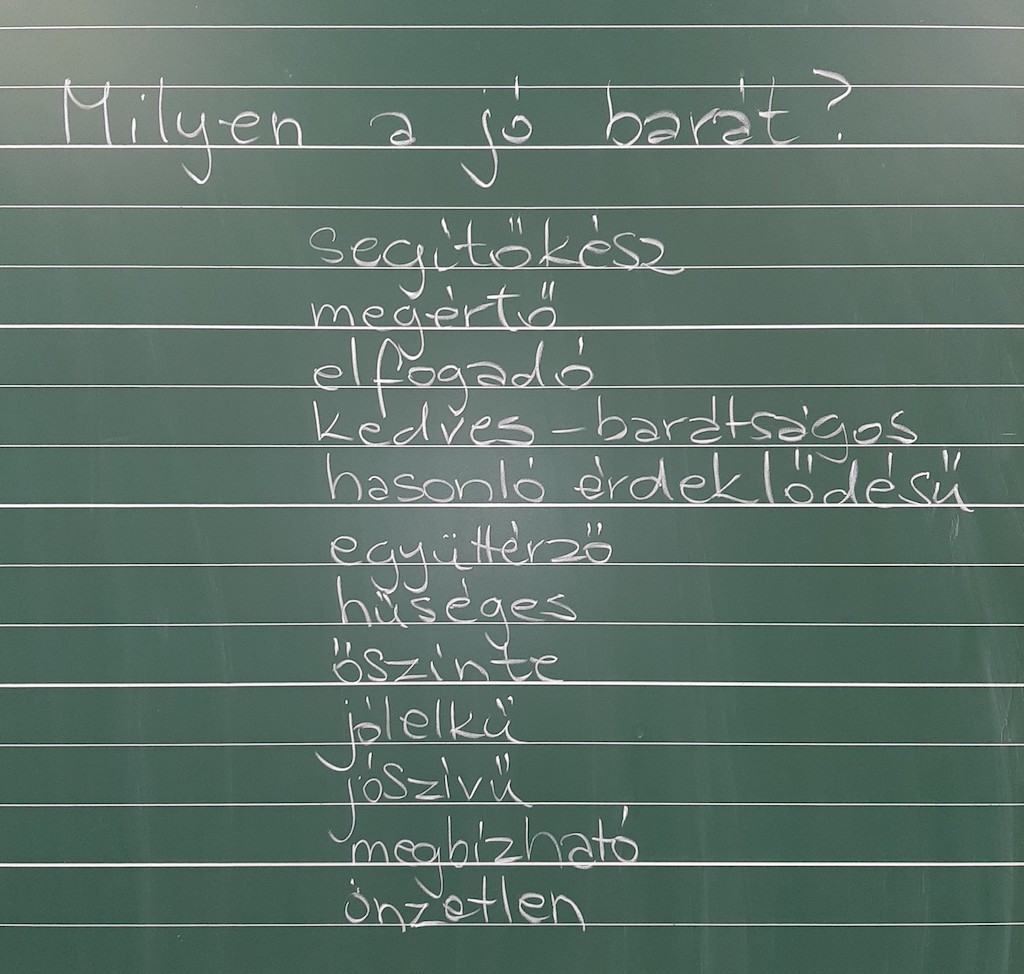 Milyen a jó barát?
segítőkész
megértő
elfogadó
kedves - barátságos
hasonló érdeklődésű
együttérző
hűséges
őszinte
jólelkű
jószívű
megbízható
önzetlen